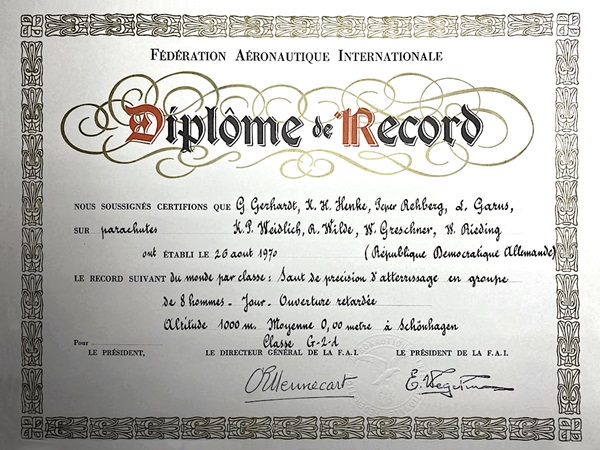 FÉDÉRATION AÉRONAUTIQUE INTERNATIONALE
Diplôme de Record
NOUS SOUSSIGNÉS CERTIFIONS QUE G Gerhardt, K. H. Henke, Rehberg, L. Garus,
SUR parachutes K. P. Weidlich, R. Wilde, W. Greschner, W. Rieding
ont ÉTABLI LE 26 aout 1970 (République Democratique Allemande)
LE RECORD SUIVANT du monde par classe: Saut de precision d'atterrissage en groupe
de 8 hommes - Jour - Ouverture retardée
Altitude 1000 m. Moyenne 0,00 metre à Schönhagen
Pour Classe G-2-d
LE PRÉSIDENT, LE DIRECTEUR GÉNÉRAL DE LA F.A.I. LE PRÉSIDENT DE LA F.A.I.